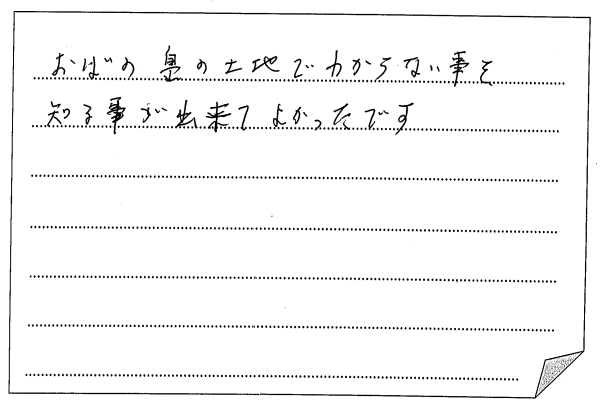 おばの島の土地でわからない事を
知る事が出来てよかったです